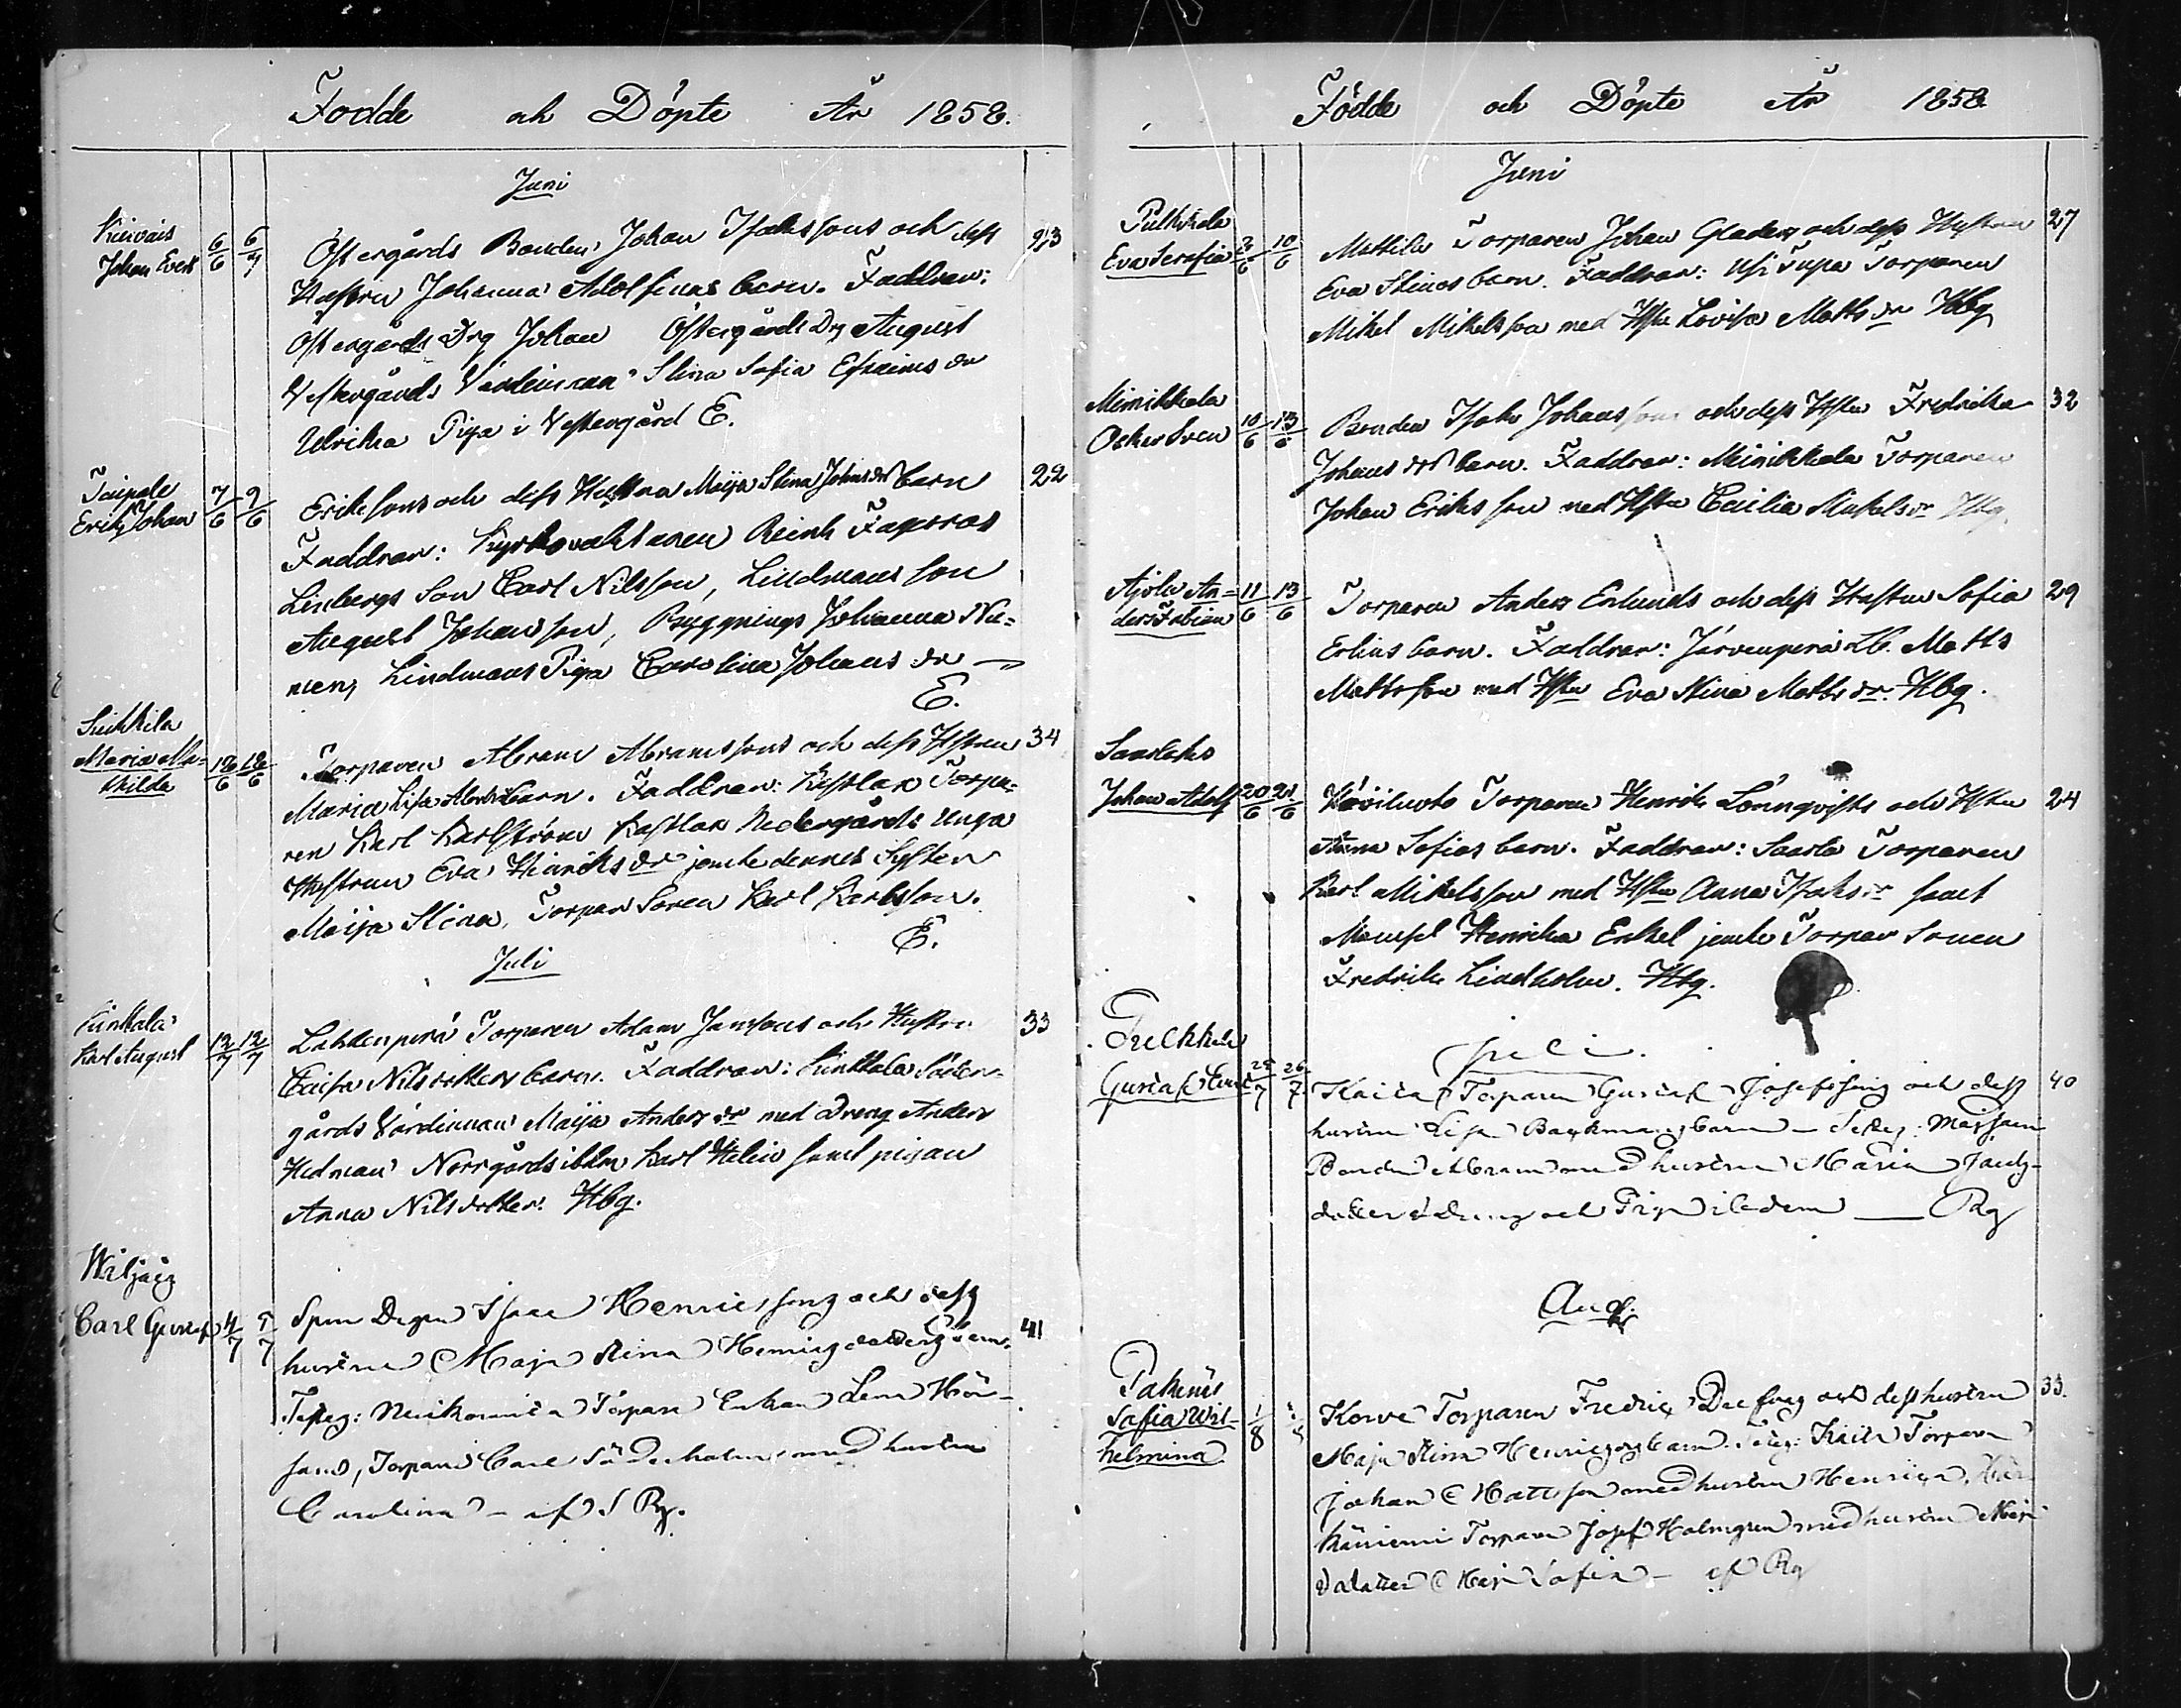 Fodde och Döpte År 1858.
Juni
Johan Evert 6/6 6/7 Östergårds Bonden Johan Isakssons och dess 23
Hustru Johanna Adolfinas barn. Faddrar:
Östergårds Drg Johan Östergårds Drg August
Vestergårds Värdinnan Stina Sofia Efraims dr
Ulrika Piga i Vestergård E.
Taipale
Erik Johan 7/6 9/6 Erikssons och dess Hustru Maija Stina Johansdrs barn 22
Faddrar: Kyrkovaktaren Reinh
Linbergs Son Carl Nilsson, Lindmans son
August Johansson, Byggnings Johanna Nie=
men, Lindmans Piga Carolina Johans dr
E.
Suikkila
Maria Ma=
thilda 12/6 12/6 Torparen Abram Abramssons och dess Hstru 34
Maria Lisa barn. Faddrar: Kastlax Torpa=
ren Karl Karlström Kastlax Nedergårds Unga
Hustrun Eva Hinriks dr jemte dennes Syster
Maija Stina, Torpar Sonen Karl Karlsson.
E.
Juli
Kinkala
Karl August 12/7 12/7 Lahdenperä Torparen Adam Jansons och Hustru 33
Caisa Nilsdotters barn. Faddrar: Kinkala Söder=
gårds Värdinnan Maija Anders dr med Dreng Anders
Hedman Norrgårds ibdm Karl Helin samt pigan
Anna Nilsdotter. Hbg.
Wiljais
Carl Gustaf 4/7 5/7 Isaac Henricssons och dess 41
hustru Maja Stina barn.
Torpare Enkan Lena
Torparen Carl Söderholm med hustru
Carolina – af S Rg.
Födde och Döpte År 1858
Juni
Pulkkala
Eva Serafia 2/6 10/6 Mattila Torparen Johan Gladers och dess Hustru 27
Eva Stinas barn. Faddrar: Usitupa Torparen
Mikel Mikelsson med Hstu Lovisa Matts dr Hbg
Minikkala
Oskar Sven 10/6 13/6 Bonden Isak Johanssons och dess Hstu Fredrika 32
Johans drs barn. Faddrar: Minikkala Torparen
Johan Eriksson med Hstu Cecilia Mikels dr Hbg.
Äijälä An=
ders Fabian 11/6 13/6 Torparen Anders Enlunds och dess Hustru Sofia 29
Erlins barn. Faddrar: Järvenperä Lb. Matts
Mattsson med Hstu Eva Stina Matts dr. Hbg.
Saarlaks
Johan Adolf 20/6 21/6 Torparen Henrik Lönnqvists och Hstu 24
Anna Sofias barn. Faddrar: Saarla Torparen
Karl Mikelsson med Hstu Anna Isaks dr samt
Mamsel Henrika Enkel jemte Torpar Sonen
Fredrik Lindholm. Hbg.
Juli.
Gustaf 25/7 26/7 Torparen Gustaf Josefssons och dess 40
hustru Lisa Backmans barn –
Bonden Abram med hustru Maria
dotter Dreng och Piga ibidem — Rg
Aug.
Pakinis
Sofia Wil-
helmina 1/8 Korve Torparen Fredric och dess hustru 33.
Maja Stina barn. Torparen
Johan Mattsson med hustru Henrica
Torparen Josef Holmgren med hustru
Maja Sofia – af Rg